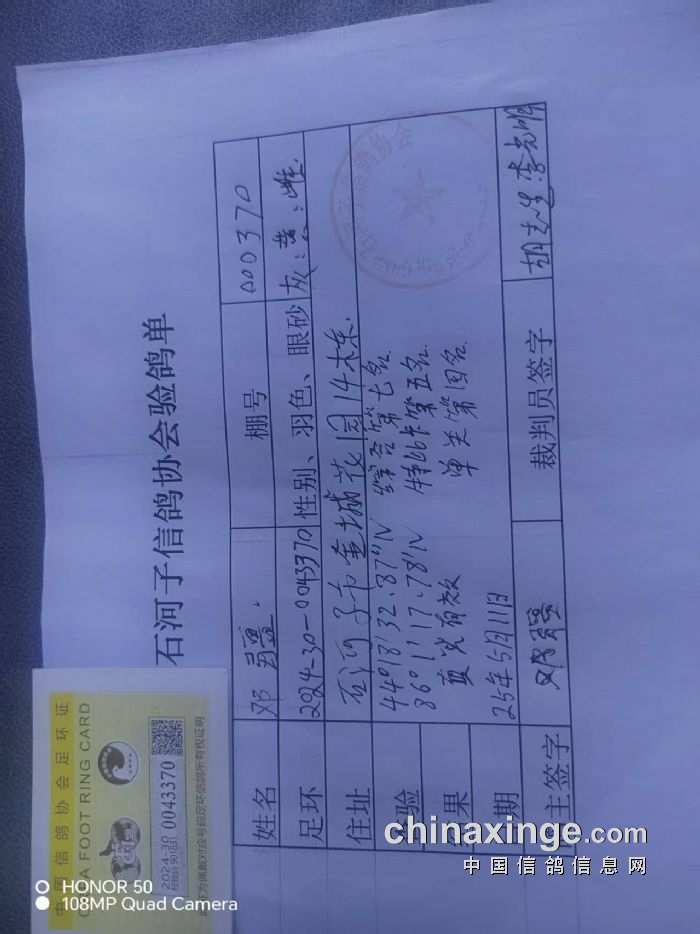 石河子信鸽协会验鸽单
姓名 邓疆 棚号 000370
足环 2024-30-0043370 性别、羽色、眼砂 灰:黄:雌.
住址 石河子市金城花园14栋.
验 44°18'32.87"N 综合第七名
86°1'17.78'N 特比卡第五名
果 真实有效 单关第四名
期 25年5月11日
主签字 邓疆 裁判员签字
石河子信鸽协会
中国信鸽协会足环证
A FOOT RING CARD
2024-30 0043370
校验码 901831
此证为佩戴对应号码足环信鸽所有权证明
chinaxinge.com
中国信鸽信息网
HONOR 50
108MP Quad Camera